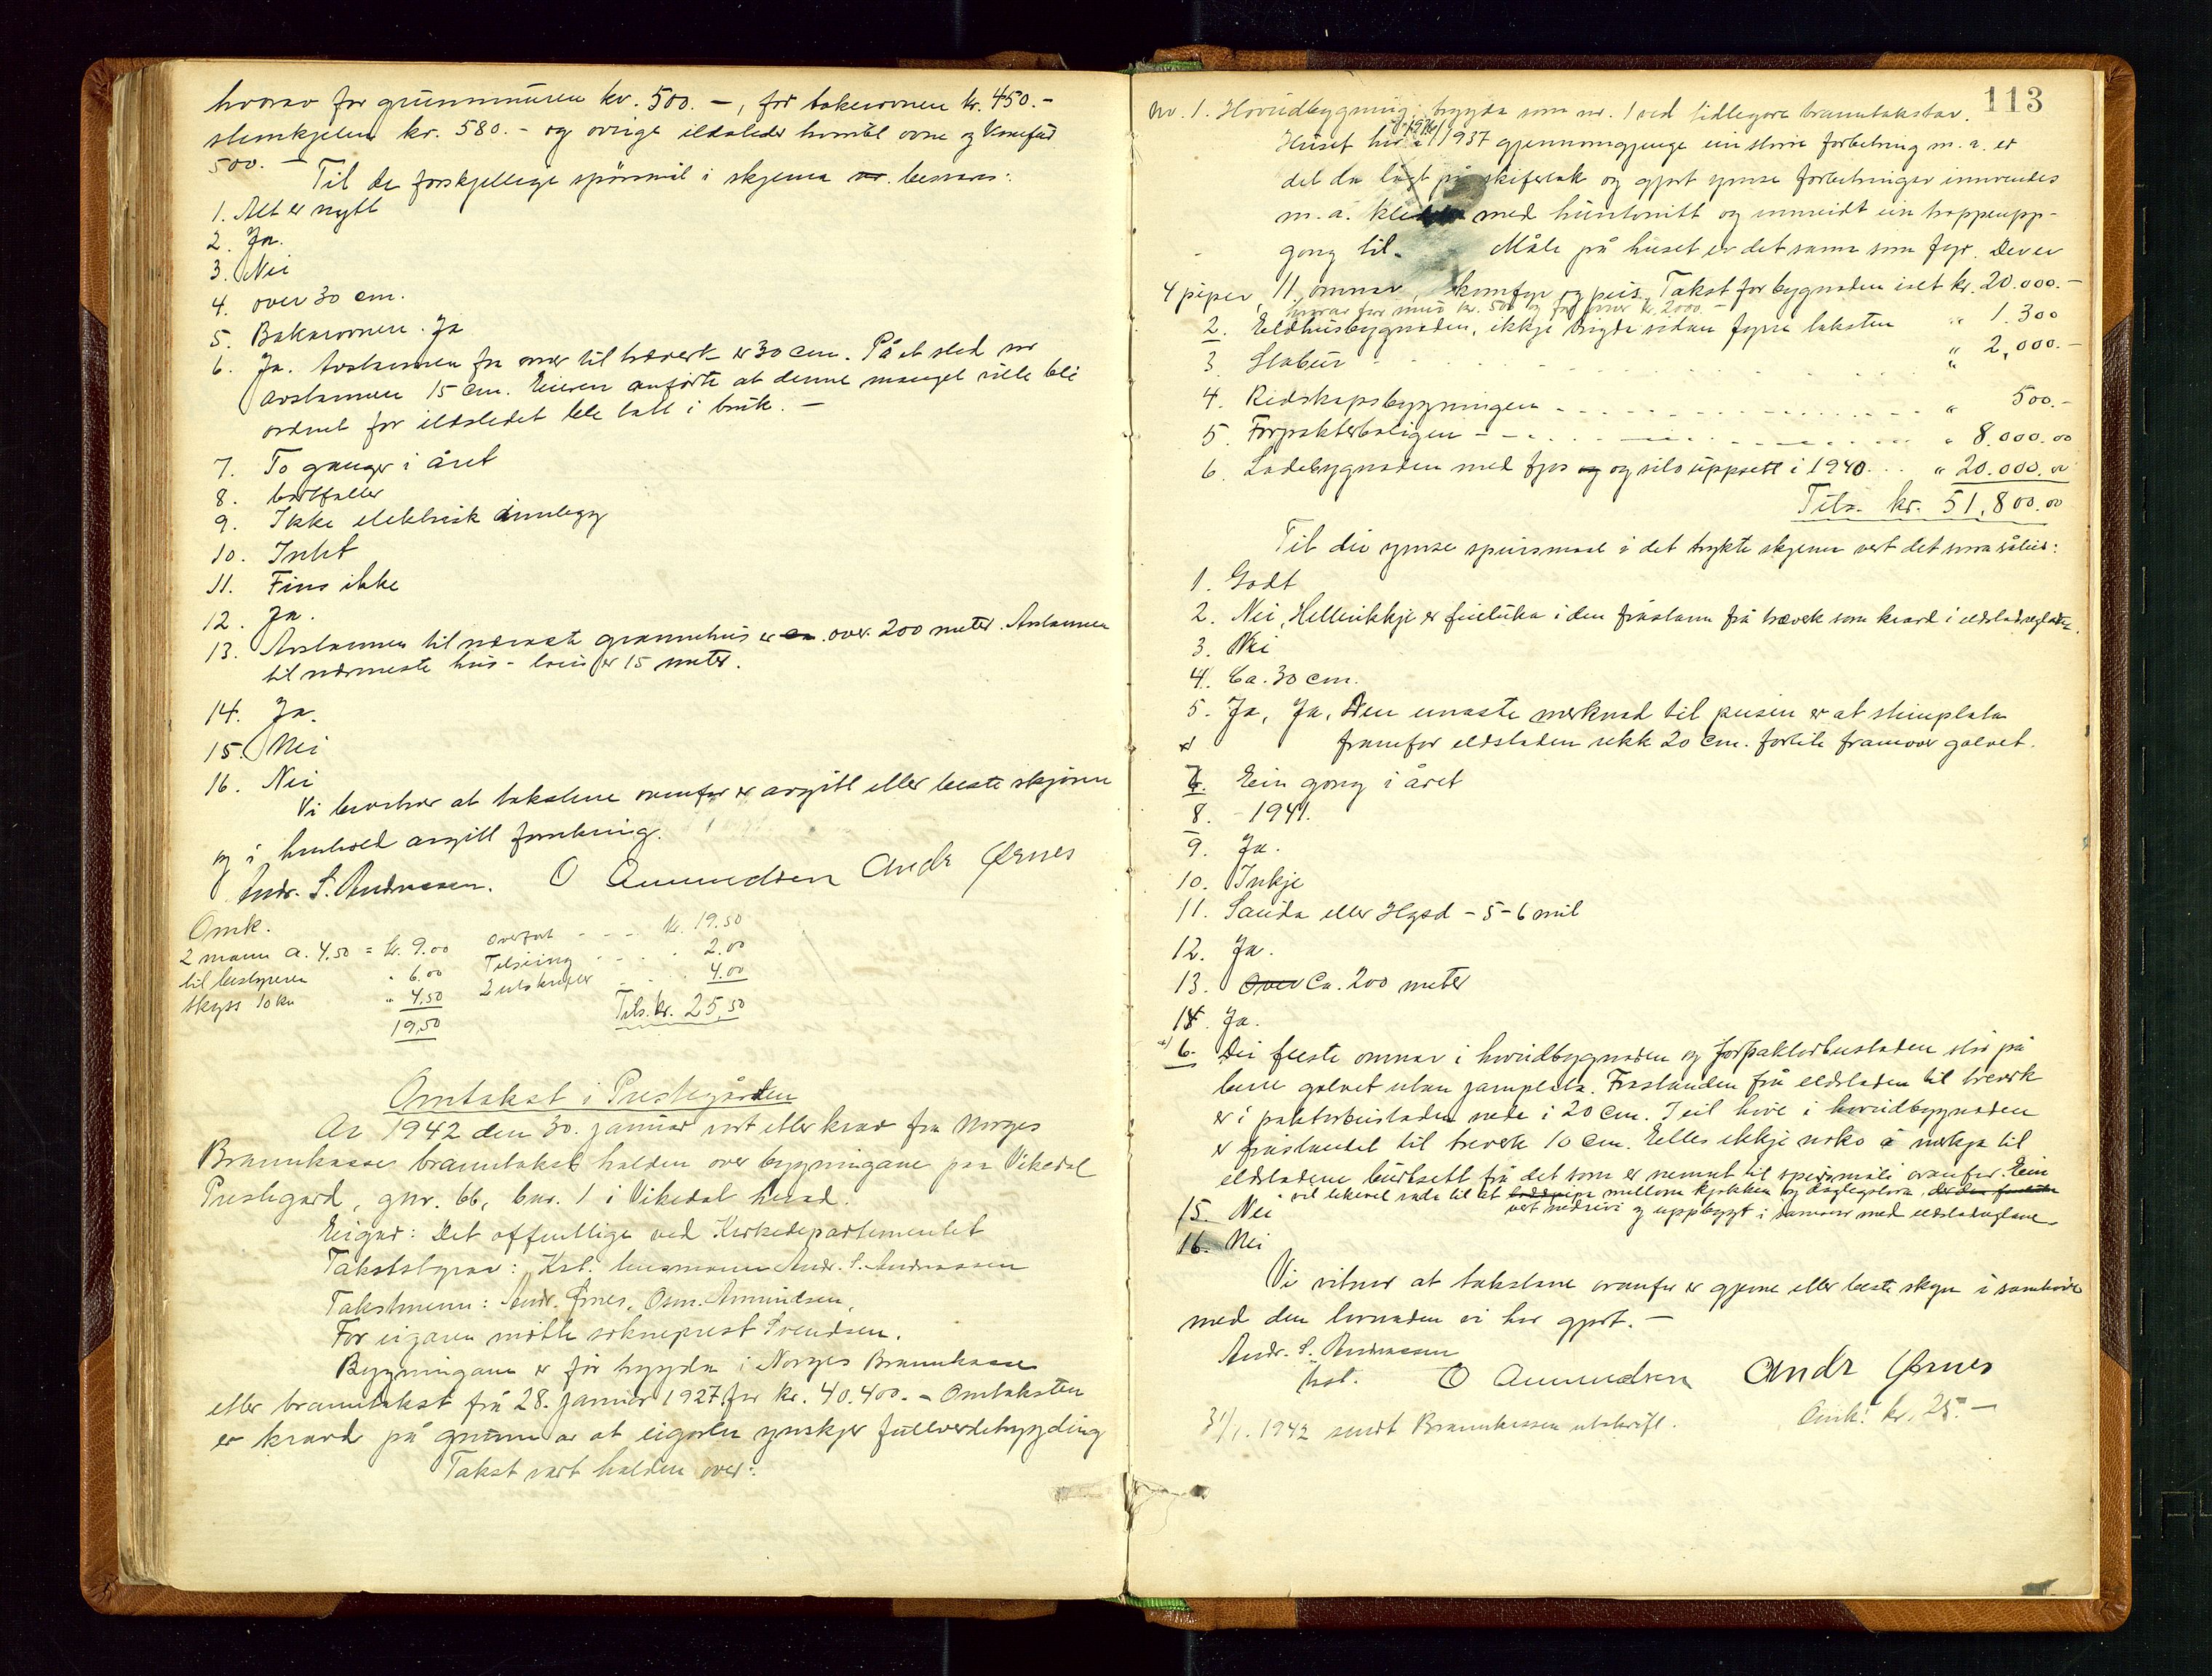 hvorav for grunnmuren kr. 500.-, for bakerovnen kr. 450.-
stemkjelen kr. 580.- og övrige ildsteder
500.-
Til de forskjellige spörsmål i skjema besvares:
1. Alt er nytt
2. Ja.
3. Nei
4. over 30 cm.
5. Bakerovnen. Ja
6. Ja. Avstannen fra ovner til treverk er 30 cm. På et sted var
avstannen 15 cm. Eieren anförte at denne mangel ville bli
ordnet för ildstedet ble tatt i bruk. -
7. To ganger i året
8. bortfaller
9. Ikke elektrisk innlegg
10. Intet
11. Fins ikke
12. Ja.
13. Avstannen til næreste grannehus er over 200 meter. Avstannen
til nærmeste hus - er 15 meter.
14. Ja.
15. Nei
16. Nei
Vi bevitner at takstene ovenfor er avgitt etter beste skjönn
og i henhold avgitt forsikring.
Andr. S. Andreassen. O Aumundsen Andr Ørnes
Omk.
2 mann a. 4.50 = kr. 9.00
til bestyreren " 6.00
skyss 10 km " 4.50
19,50
Overfört - - - kr. 19.50
Tilsiing . . . . 2.00
2 utskrifter . . . 4.00
Tils. kr. 25,50
Omtakst i Prestegården
År 1942 den 30. januar vart etter krav fra Norges
Brannkasse branntakst halden over bygningane paa Vikedal
Prestegard, gnr. 66, bnr. 1 i Vikedal herad.
Eigar: Det offentlige ved Kirkedepartementet
Takststyrar: Kst. lensmann Andr. S. Andreassen
Takstmenn: Andr. Ørnes, Osm. Amundsen,
For eigaren mötte sokneprest Svendsen.
Bygningane er för trygda i Norges Brannkasse
etter branntakst frå 28. januar 1927 for kr. 40.400.- Omtaksten
er kravd på grunn av at eigaren ynskjer fullverdetrygding
Takst vart halden over:
113
Nr. 1. Hovudbygning: trygda som nr. 1 ved tidlegare branntakstar.
Huset har i 1936/1937 gjennomgjenge ein större forbetring m. a. er
det da lagt på skifertak og gjort ymse forbetringar innvendes
m. a. kledd med huntonitt og innreidt ein trappeupp-
gong til. Måle på huset er det same som för. Der er
4 piper, 11 omnar, komfyr og peis. Takst for bygnaden iset kr. 20.000.-
hvorav for mur kr. 500 og for piper kr. 2000.-
2. Eldhusbygnaden, ikkje brigda sidan fyrre taksten " 1.300
3. Stabur " 2,000.-
4. Reidskapsbygningen " 500.-
5. Forpakterboligen " 8.000.00
6. Ladebygnaden med fjos og og silo uppsett i 1940 " 20.000.00
Tils. kr. 51,800.00
Til dei ymse spursmaal i det trykte skjema vert det svara såleis:
1. Godt
2. Nei, Hellerikkje er feieluka i den fråstann frå treverk som kravd i eldstadreglane.
3. Nei
4. Ca. 30 cm.
5. Ja, Ja, Den einaste merknad til peisen er at steinplata
x) framfor eldstaden rekk 20 cm. forlite framover golvet.
7. Ein gong i året
8. - 1941.
9. Ja.
10. Inkje
11. Sauda eller Hgsd - 5-6 mil
12. Ja.
13. Over Ca. 200 meter
14. Ja.
x) 6. Dei fleste omnar i hovudbygnaden og forpaktarbustaden står på
berre golvet utan jarnplata. Fråstanden frå eldstaden til treverk
er i paktarbustaden nede i 20 cm. I eit höve i hovudbygnaden
er fråstandet til treverk 10 cm. Elles ikkje noko å merkja til
eldstadene burtsett frå det som er nemnt til spursmåli ovanfor. Ein
vil likevel råda til at mellom kjökken og daglegstova
vert nedrivi og uppbygt i samsvar med eldstadreglane.
15. Nei
16. Nei
Vi vitnar at takstane ovanfor er gjevne etter beste skyn i samhöve
med den lovnaden vi har gjort. -
Andr. S. Andreassen
kst. O Aumundsen Andr Ørnes
31/1. 1942 sendt Brannkassen utskrift. Omk. kr. 25.-